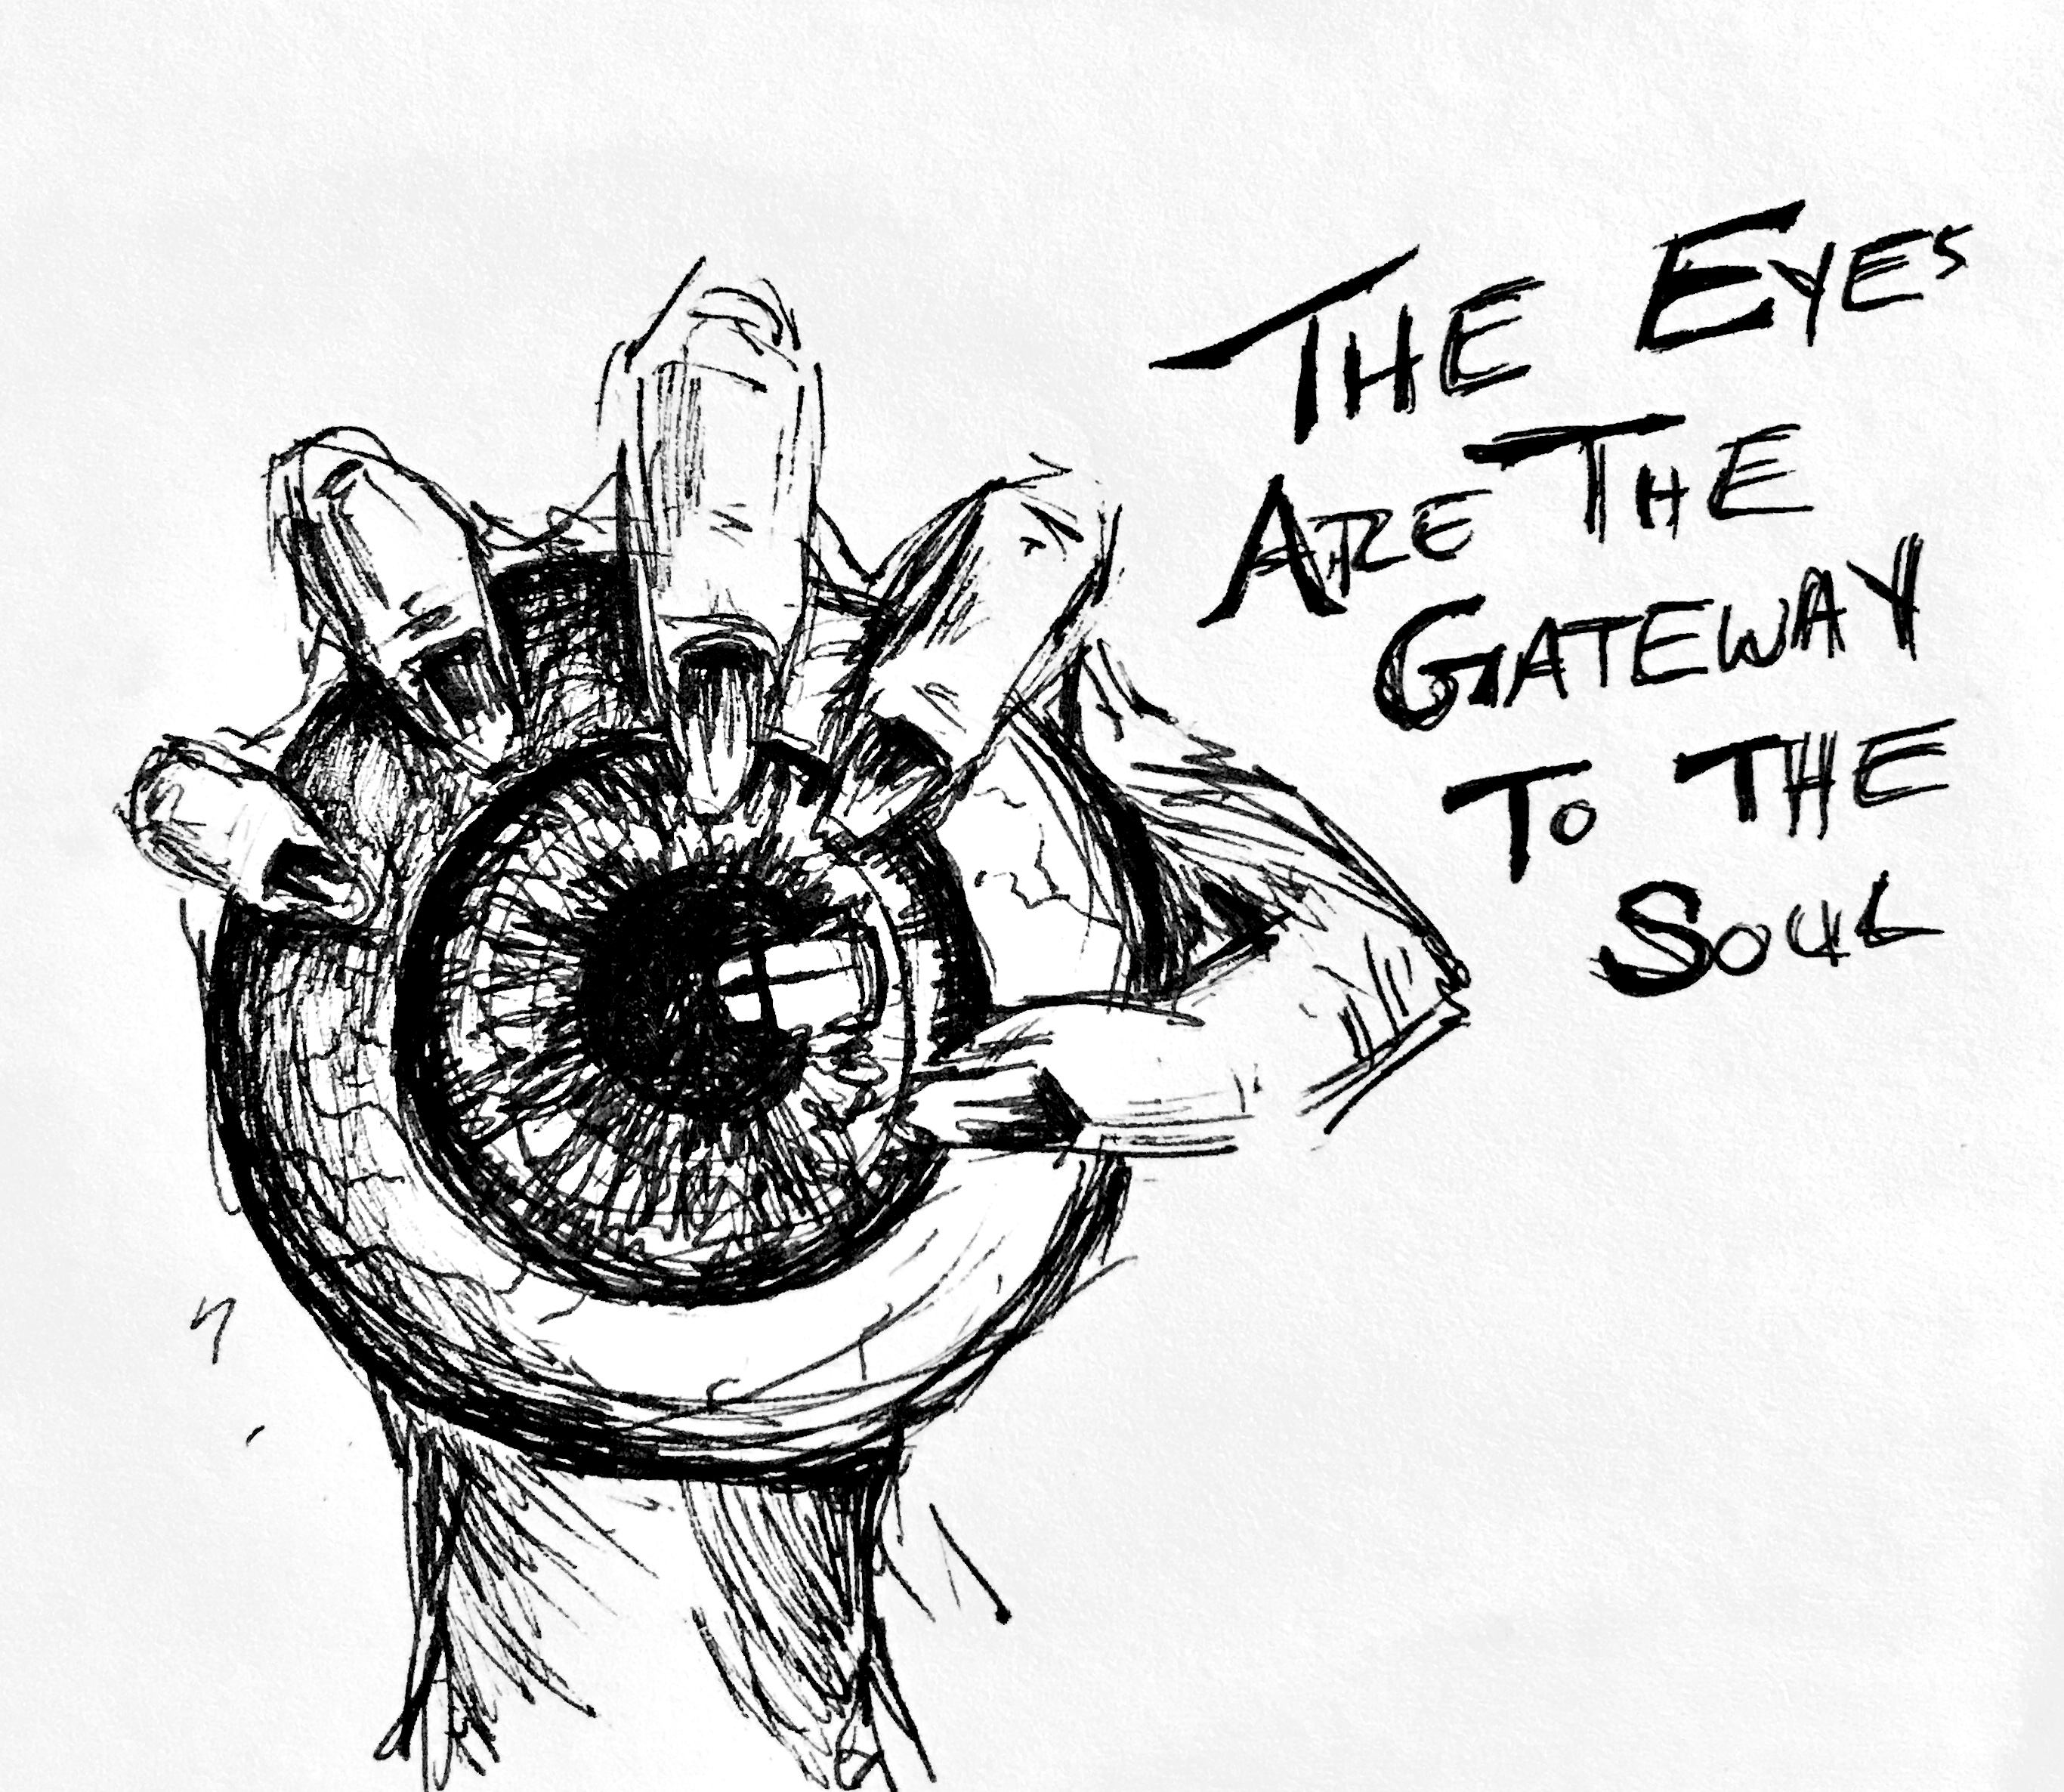 THE EYES
ARE THE
GATEWAY
TO THE
SOUL